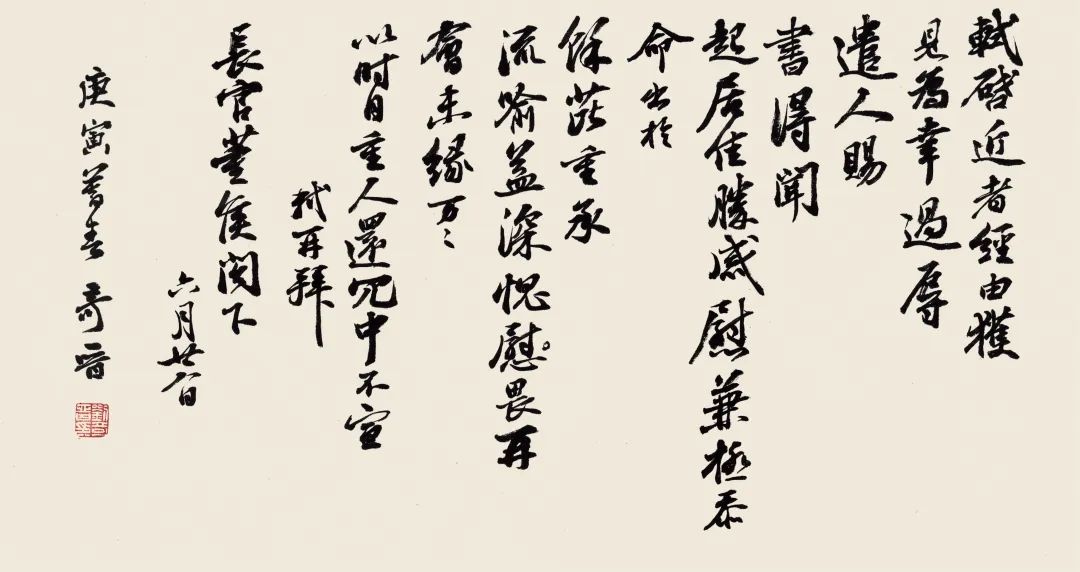 軾啓近者經由獲
見為幸過辱
遣人賜
書得聞
起居佳勝感慰兼極忝
命出於
餘芘重承
流喻益深愧慰畏再
會未緣万〻
以时自重人還冗中不宣
軾再拜
長官董侯閣下
六月廿八日
庚寅暮春 奇晋